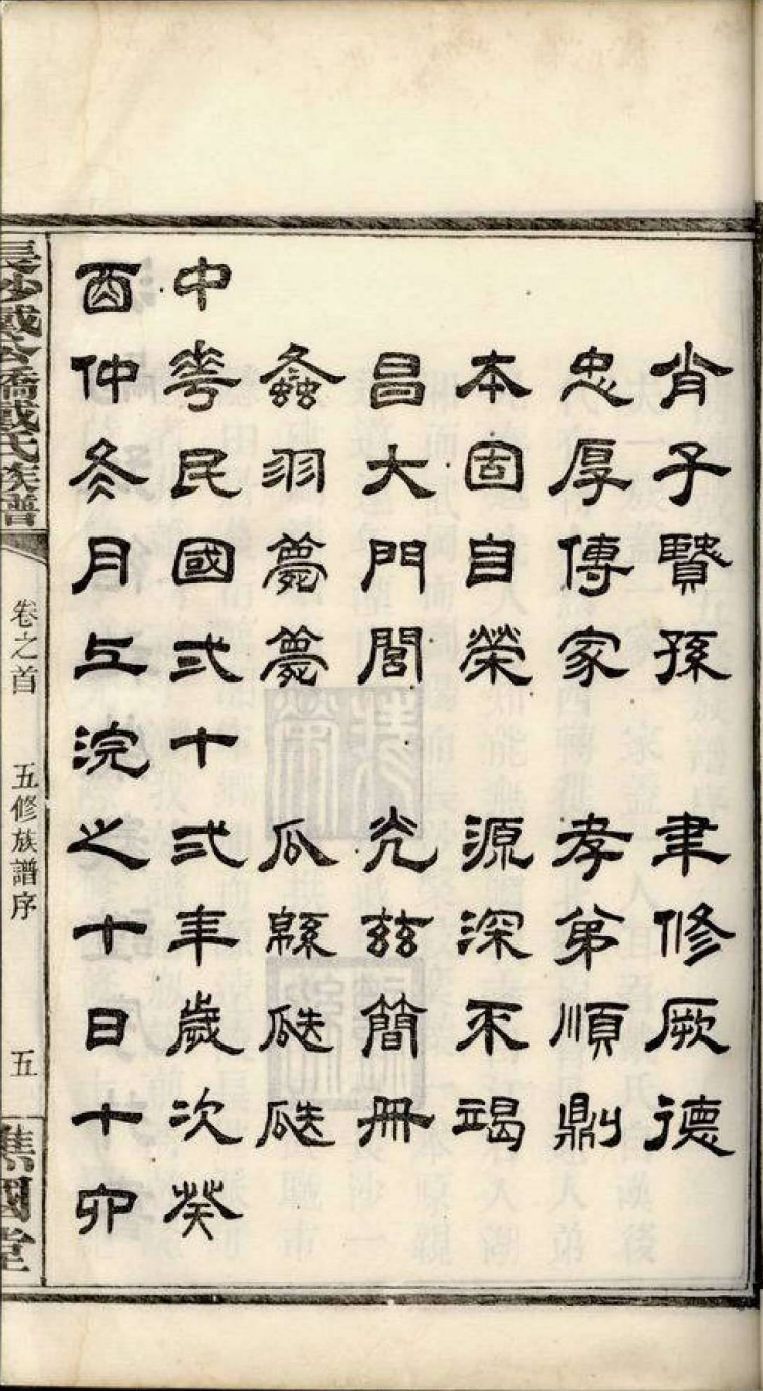 肖子賢孫　聿修厥德
忠厚傳家　孝弟順則
本固自榮　源深不竭
昌大門閭　光茲簡冊
螽羽薨薨　瓜緜瓞瓞
中華民國弍十弍年歲次癸
酉仲冬月上浣之十日十卯
長沙戴公橋戴氏族譜
卷之首　五修族譜序　五
譙國堂